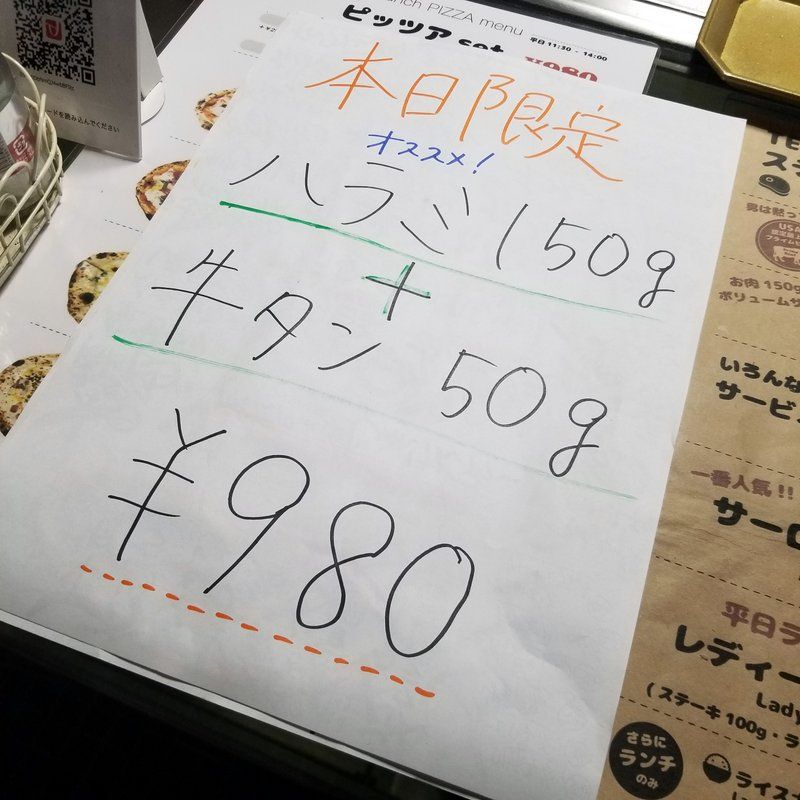 PIZZA menu
ピッツア set
平日 11:30 - 14:00
¥980
ードを読み込んでください
本日限定
オススメ!
ハラミ 150g
+
牛タン 50g
¥980
男は黙っ
USA
お肉 150g
ボリュームサ
いろんな
サービ
一番人気!!
サーロ
平日ラ
レディー
Lady
(ステーキ 100g・ラ
さらに
ランチ
のみ
ライス